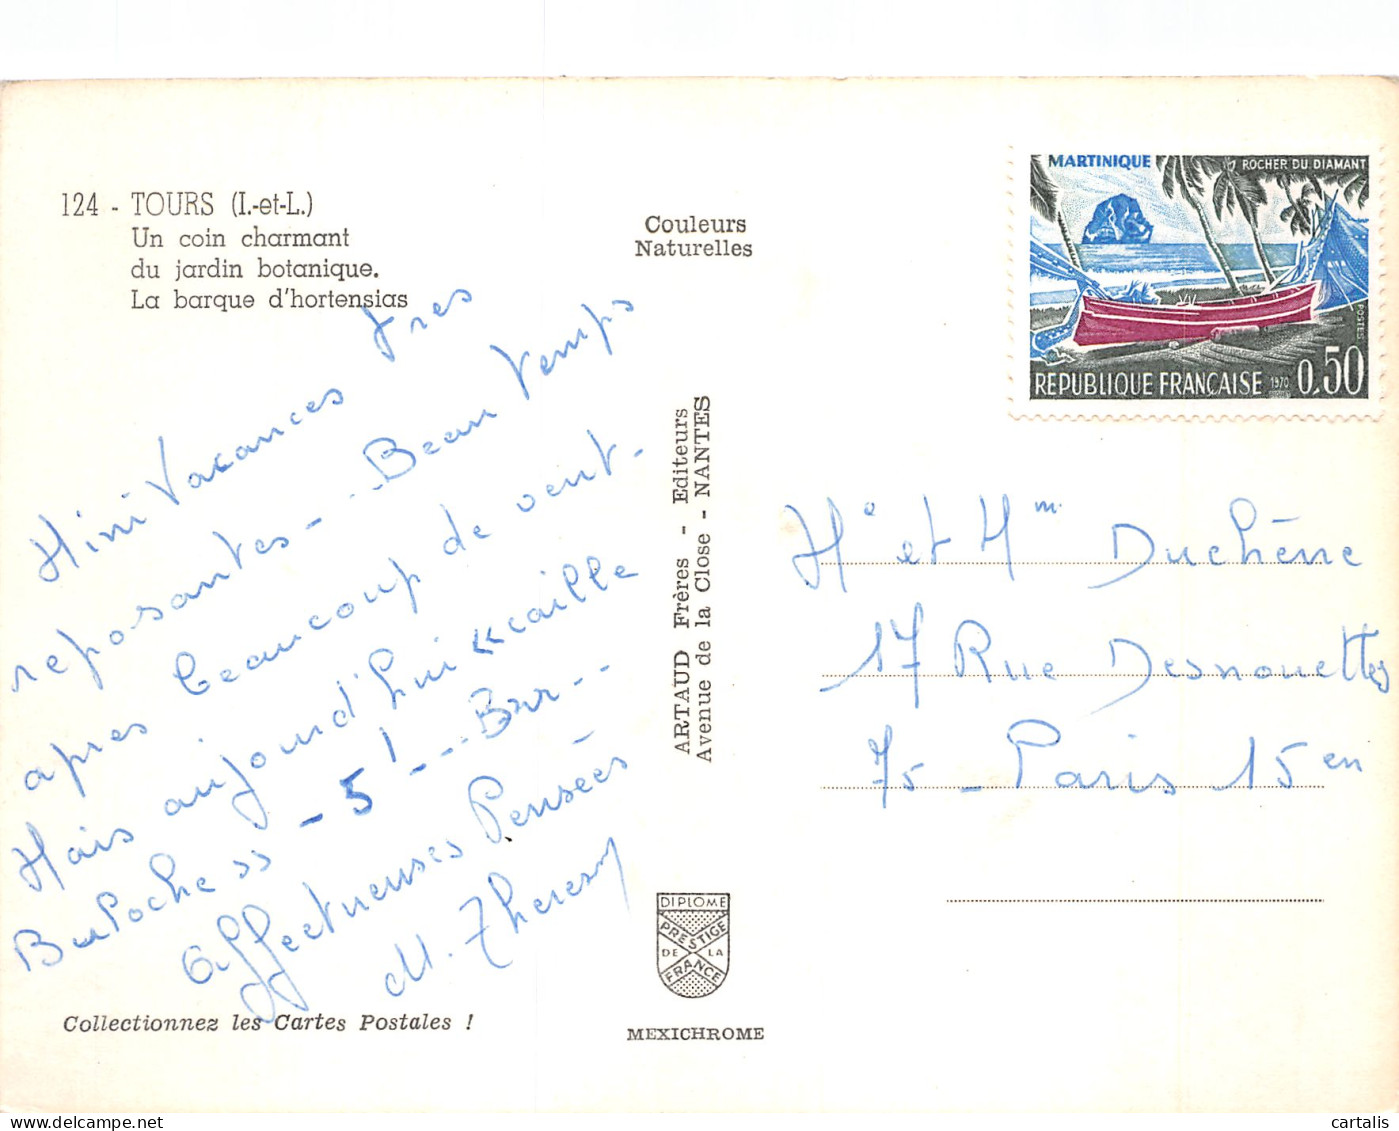 124 - TOURS (I.-et-L.)
Un coin charmant
du jardin botanique.
La barque d'hortensias
Couleurs
Naturelles
MARTINIQUE
ROCHER DU DIAMANT
POSTES
REPUBLIQUE FRANÇAISE 1970 0,50
Mini Vacances tres
reposantes - - Beau Temps
apres beaucoup de vent -
Mais aujourd'hui «caille
- 5 ! - - - Brr - -
Affectueuses Pensées
M. Theresy
ARTAUD Frères - Editeurs
Avenue de la Close - NANTES
Me et Mm Duchêne
17 Rue Desnouettes
75 - Paris 15 en
DIPLOME
PRESTIGE
DE LA
FRANCE
Collectionnez les Cartes Postales !
MEXICHROME
cartalis